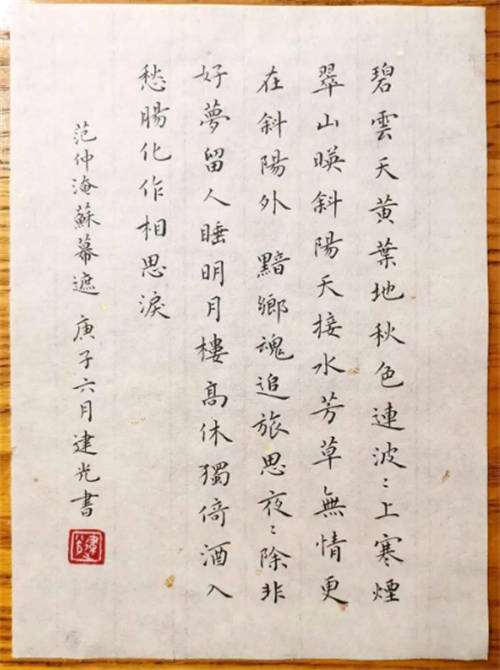 碧雲天黄葉地秋色連波〻上寒煙
翠山暎斜陽天接水芳草無情更
在斜陽外 黯鄉魂追旅思夜〻除非
好夢留人睡明月樓高休獨倚酒入
愁腸化作相思淚
范仲淹蘇幕遮 庚子六月建光書